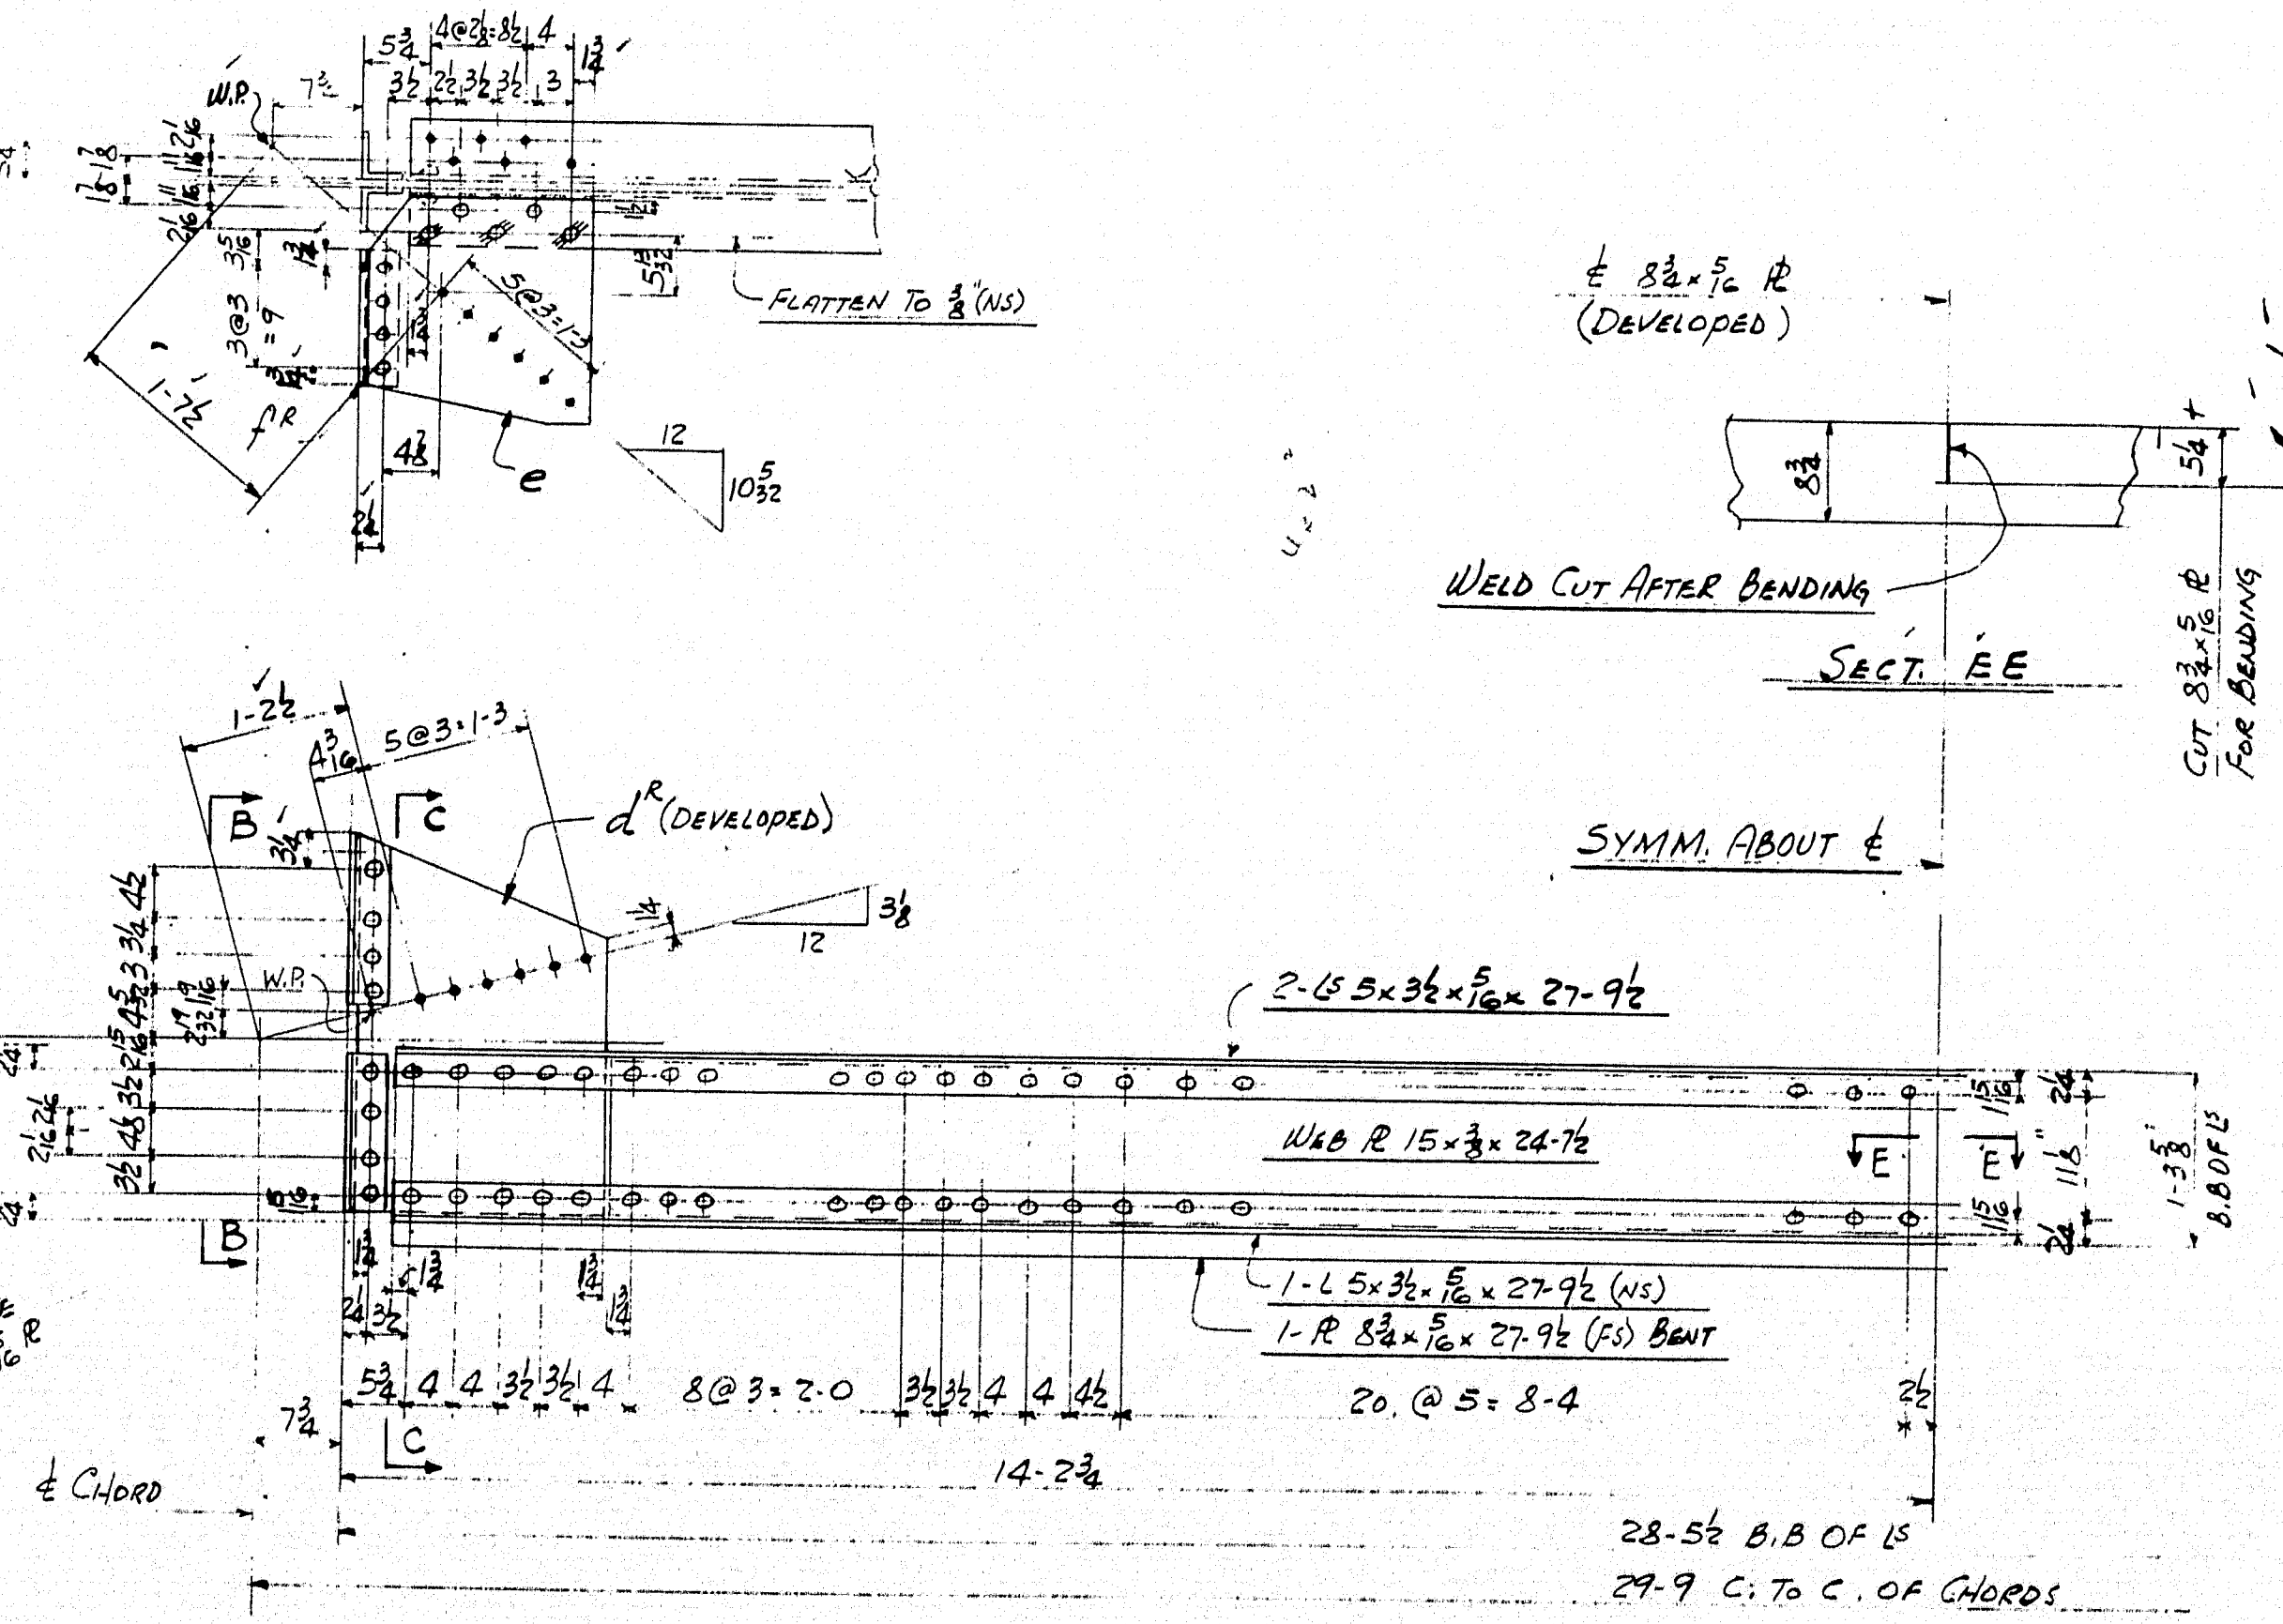 5 3/4
4@2 1/8=8 1/2
4
1 3/4
3 1/2 2 1/2 3 1/2 3 1/2 3
W.P.
1 7/8 1 7/8
2 1/16 1 11/16 1 11/16 2 1/16
3 5/16
1 3/4
3@3 = 9
1-7 1/2
f R
4 7/8
2 1/4
e
1 1/2
5 13/32
5@3=1-3
FLATTEN TO 3/8" (NS)
12
10 5/32
℄ 8 3/4 x 5/16 PL
(DEVELOPED)
8 3/4
5 1/4 +
WELD CUT AFTER BENDING
CUT 8 3/4 x 5/16 PL
FOR BENDING
SECT. EE
1-2 1/2
4 3/16
5@3=1-3
B
C
d R (DEVELOPED)
3 1/4
1 1/4
12
3 1/8
SYMM. ABOUT ℄
4 1/2
3 1/4
3
4 5/32
2 15/16
3 1/2
4 1/8
3 1/2
W.P.
1 9/16
2 19/32
2 1/4
2 1/16 2 1/16
2 1/4
2-Ls 5 x 3 1/2 x 5/16 x 27-9 1/2
WEB PL 15 x 3/8 x 24-7 1/2
E
E
1 15/16
2 1/4
11 1/8"
1 15/16
2 1/4
1-3 5/8"
B.B OF Ls
B
1 3/4
1 3/4
1 3/4
1 3/4
2 1/4 3 1/2
1-L 5 x 3 1/2 x 5/16 x 27-9 1/2 (NS)
1-PL 8 3/4 x 5/16 x 27-9 1/2 (FS) BENT
5 3/4 4 4 3 1/2 3 1/2 4 8@3=2-0 3 1/2 3 1/2 4 4 4 1/2 20 @ 5 = 8-4 2 1/2
7 3/4
C
14-2 3/4
℄ CHORD
28-5 1/2 B.B OF Ls
29-9 C. TO C. OF CHORDS